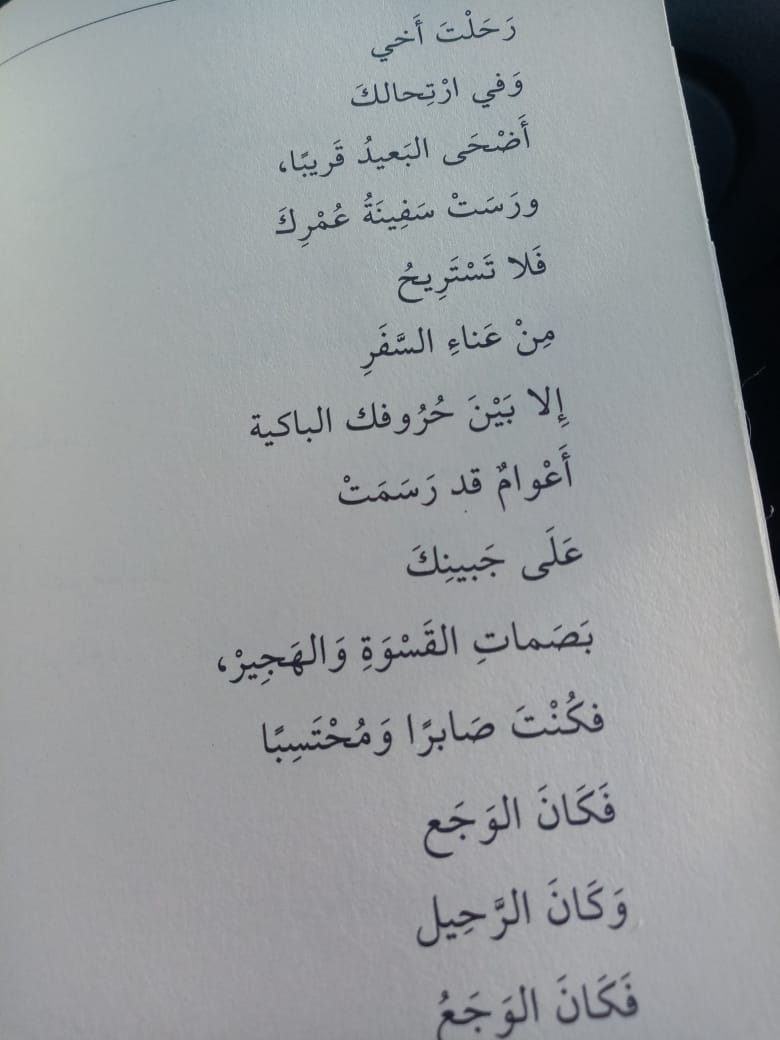 رَحَلْتَ أَخي
وَفي ارْتِحالكَ
أَضْحَى البَعيدُ قَريبًا،
ورَسَتْ سَفِينَةُ عُمْرِكَ
فَلا تَسْتَرِيحُ
مِنْ عَناءِ السَّفَرِ
إِلا بَيْنَ حُرُوفك الباكية
أَعْوامٌ قد رَسَمَتْ
عَلَى جَبينِكَ
بَصَماتِ القَسْوَةِ وَالهَجِيرْ،
فكُنْتَ صَابرًا وَمُحْتَسِبًا
فَكَانَ الوَجَع
وَكَانَ الرَّحِيل
فَكَانَ الوَجَعُ